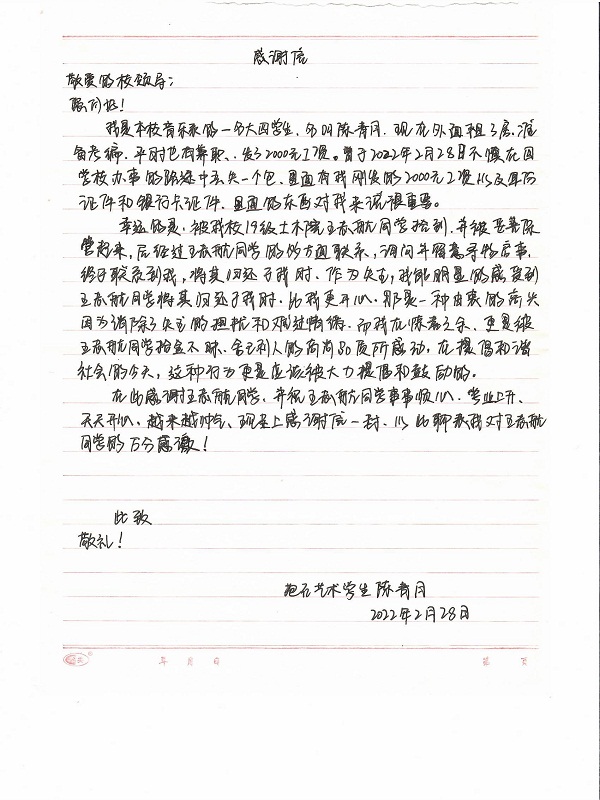 感谢信
敬爱的校领导：
您们好！
我是本校音乐系的一名大四学生，名叫陈青月，现在外面租了房，准
备考编，平时也有兼职，发了2000元工资。曾于2022年2月28日不慎在回
学校办事的路途中丢失一个包，里面有我刚发的2000元工资以及身份
证件和银行卡证件，里面的东西对我来说很重要。
幸运的是，被我校19级土木院王春航同学拾到，并被妥善保
管起来，后经过王春航同学的多方面联系，询问并留意寻物启事，
终于联系到我，将其归还于我时，作为失主，我能明显的感受到
王春航同学将其归还于我时，比我更开心，那是一种由衷的高兴
因为消除了失主的担忧和难过情绪，而我在惊喜之余，更是被
王春航同学拾金不昧、舍己利人的高尚品质所感动，在提倡和谐
社会的今天，这种行为更是应该被大力提倡和鼓励的。
在此感谢王春航同学，并祝王春航同学事事顺心、学业上升、
天天开心、越来越帅气、现呈上感谢信一封，以此聊表我对王春航
同学的万分感激！
此致
敬礼！
艺术学生 陈青月
2022年2月28日
年 月 日
第 页